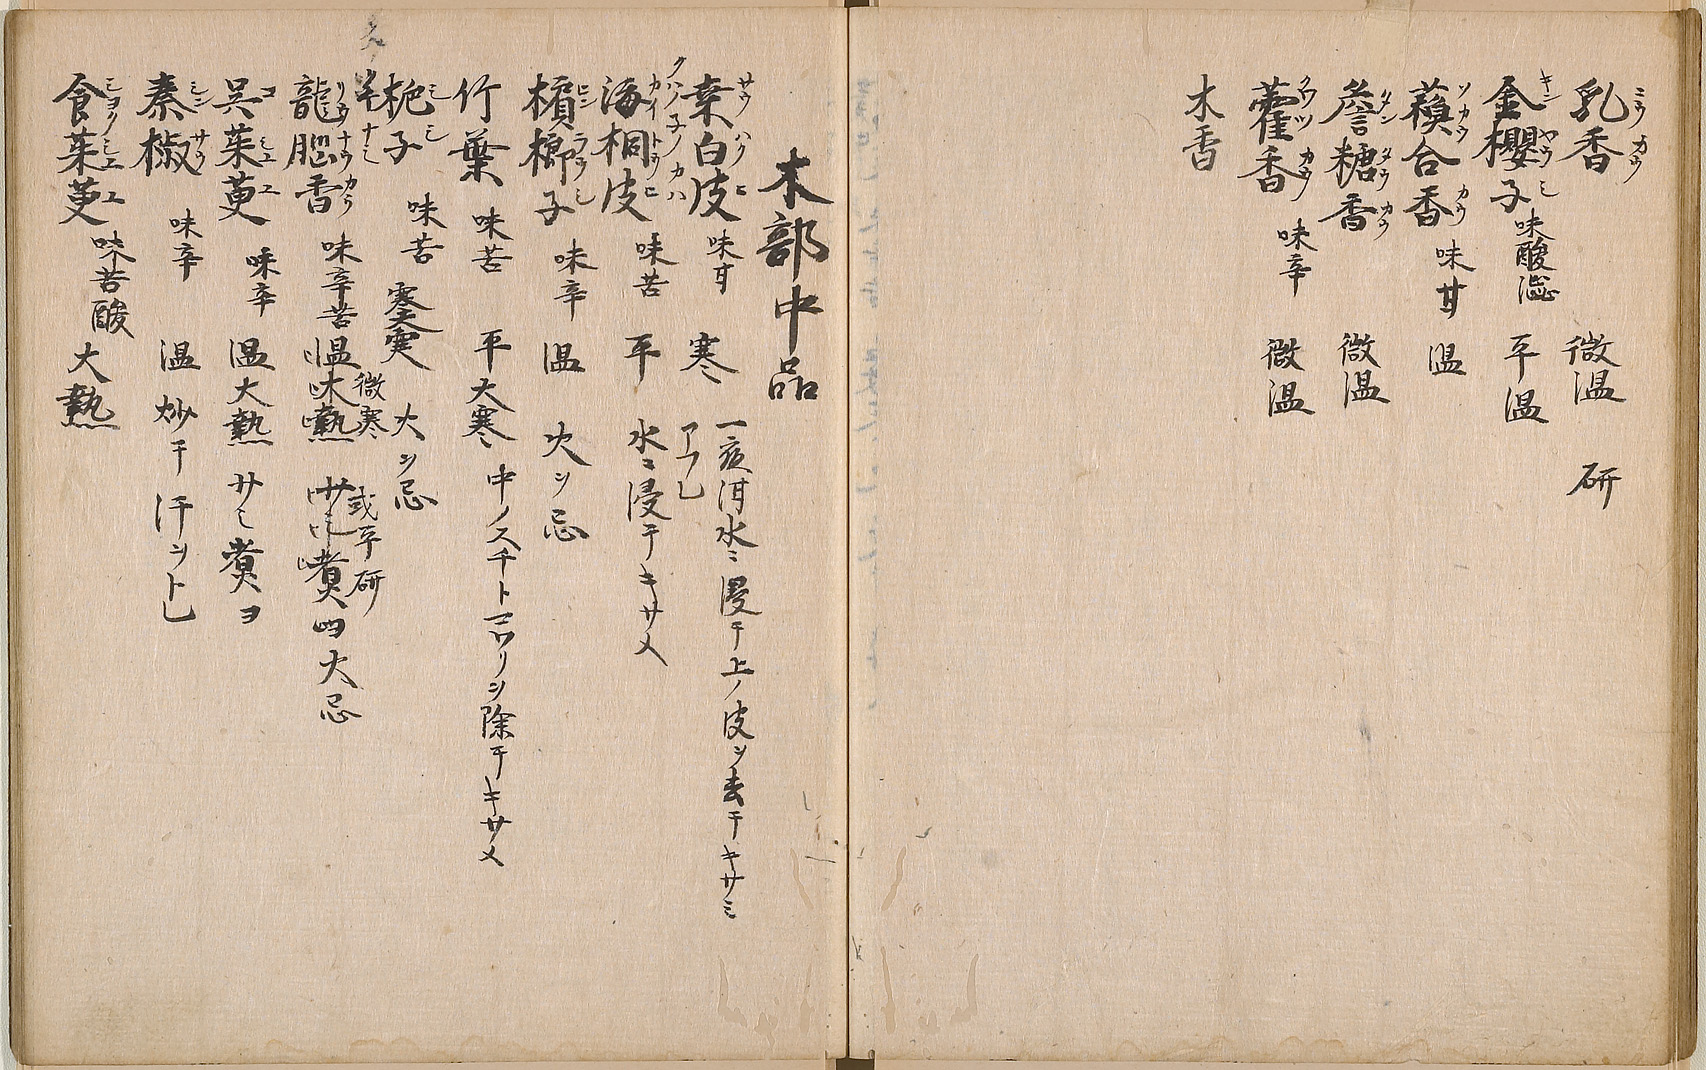 乳香 微温 研
金櫻子 味酸澁 平温
蘓合香 味甘 温
詹糖香 微温
藿香 味辛 微温
木香
木部中品
桒白皮 味甘 寒 一夜泔水ニ浸テ上ノ皮ヲ去テキサミ
アフレ
海桐皮 味苦 平 水ニ浸テキサメ
檳榔子 味辛 温 火ヲ忌
竹葉 味苦 平大寒 中ノスチトマワリヲ除テキサメ
梔子 味苦 寒大寒 火ヲ忌
龍脳香 味辛苦 微寒 或平研 火忌
呉茱萸 味辛 温大熱 サミ煮ヨ
秦椒 味辛 温 炒テ汗ヲトレ
食茱萸 味苦酸 大熱